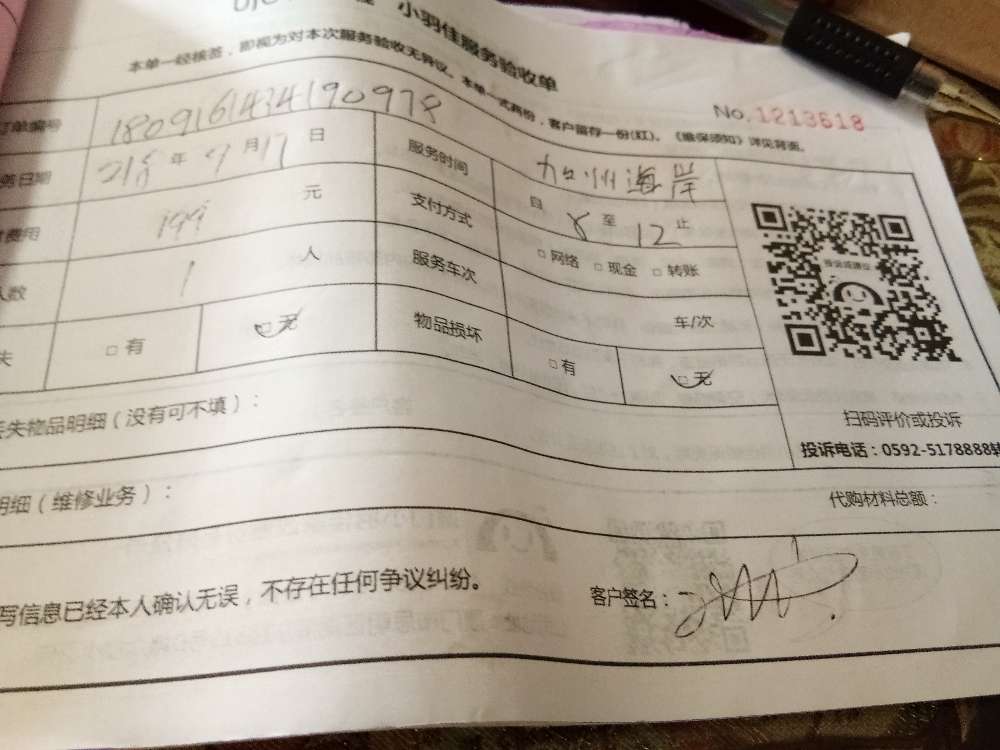 小羽佳服务验收单
本单一经核签，即视为对本次服务验收无异议。本单一式两份，客户留存一份(红)。《维保须知》详见背面。
No.1213618
订单编号 180916434190978
加州海岸
务日期 年 9月17日 服务时间 自 8 至 12 止
费用 199 元 支付方式 □网络 □现金 □转账
人数 1 人 服务车次 车/次
失 □有 □无 物品损坏 □有 □无
丢失物品明细（没有可不填）：
扫码评价或投诉
投诉电话：0592-5178888转
明细（维修业务）：
代购材料总额：
写信息已经本人确认无误，不存在任何争议纠纷。
客户签名：